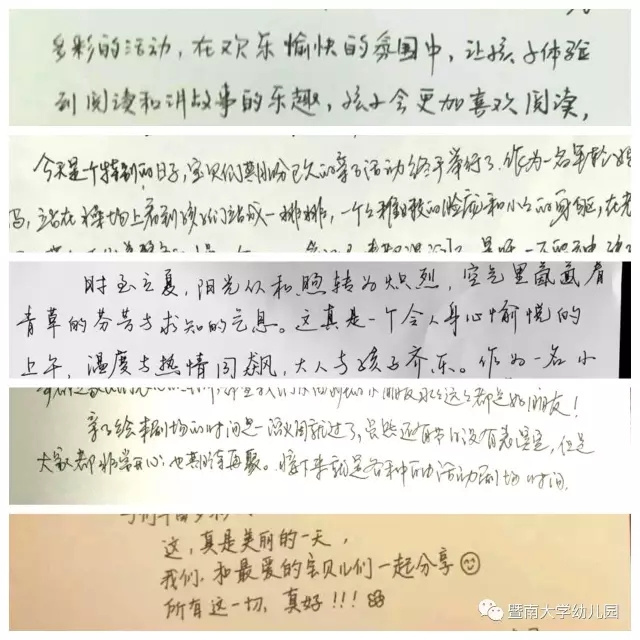 多彩的活动，在欢乐愉快的氛围中，让孩子体验
到阅读和讲故事的乐趣，孩子会更加喜欢阅读，
今天是一个特别的日子，宝贝们期盼已久的亲子活动终于举行了.作为一名年轻妈
妈，站在操场上看到孩子们站成一排排，一个个稚嫩的脸庞和小小的身躯，在
时至立夏，阳光从和煦转为炽烈，空气里氤氲着
青草的芬芳与求知的气息。这真是一个令人身心愉悦的
上午，温度与热情同飙，大人与孩子齐乐。作为一名小
都是好朋友！
亲子绘本剧场的时间是一晃就过了，虽然还有节目没有表演完，但是
大家都非常开心，也期待再聚。接下来就是各种的活动剧场时间.
这，真是美丽的一天，
我们，和最爱的宝贝儿们一起分享
所有这一切，真好！！！
暨南大学幼儿园